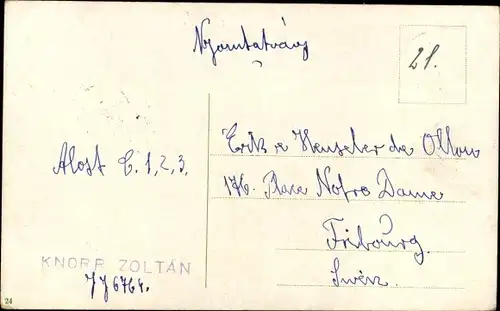 Nyomtatvány
21.
Alost C. 1, 2, 3.
Erik e Henseler de Ollon
176. Place Notre Dame
Fribourg.
Svéiz.
KNORR ZOLTÁN
JJ 6764.
24